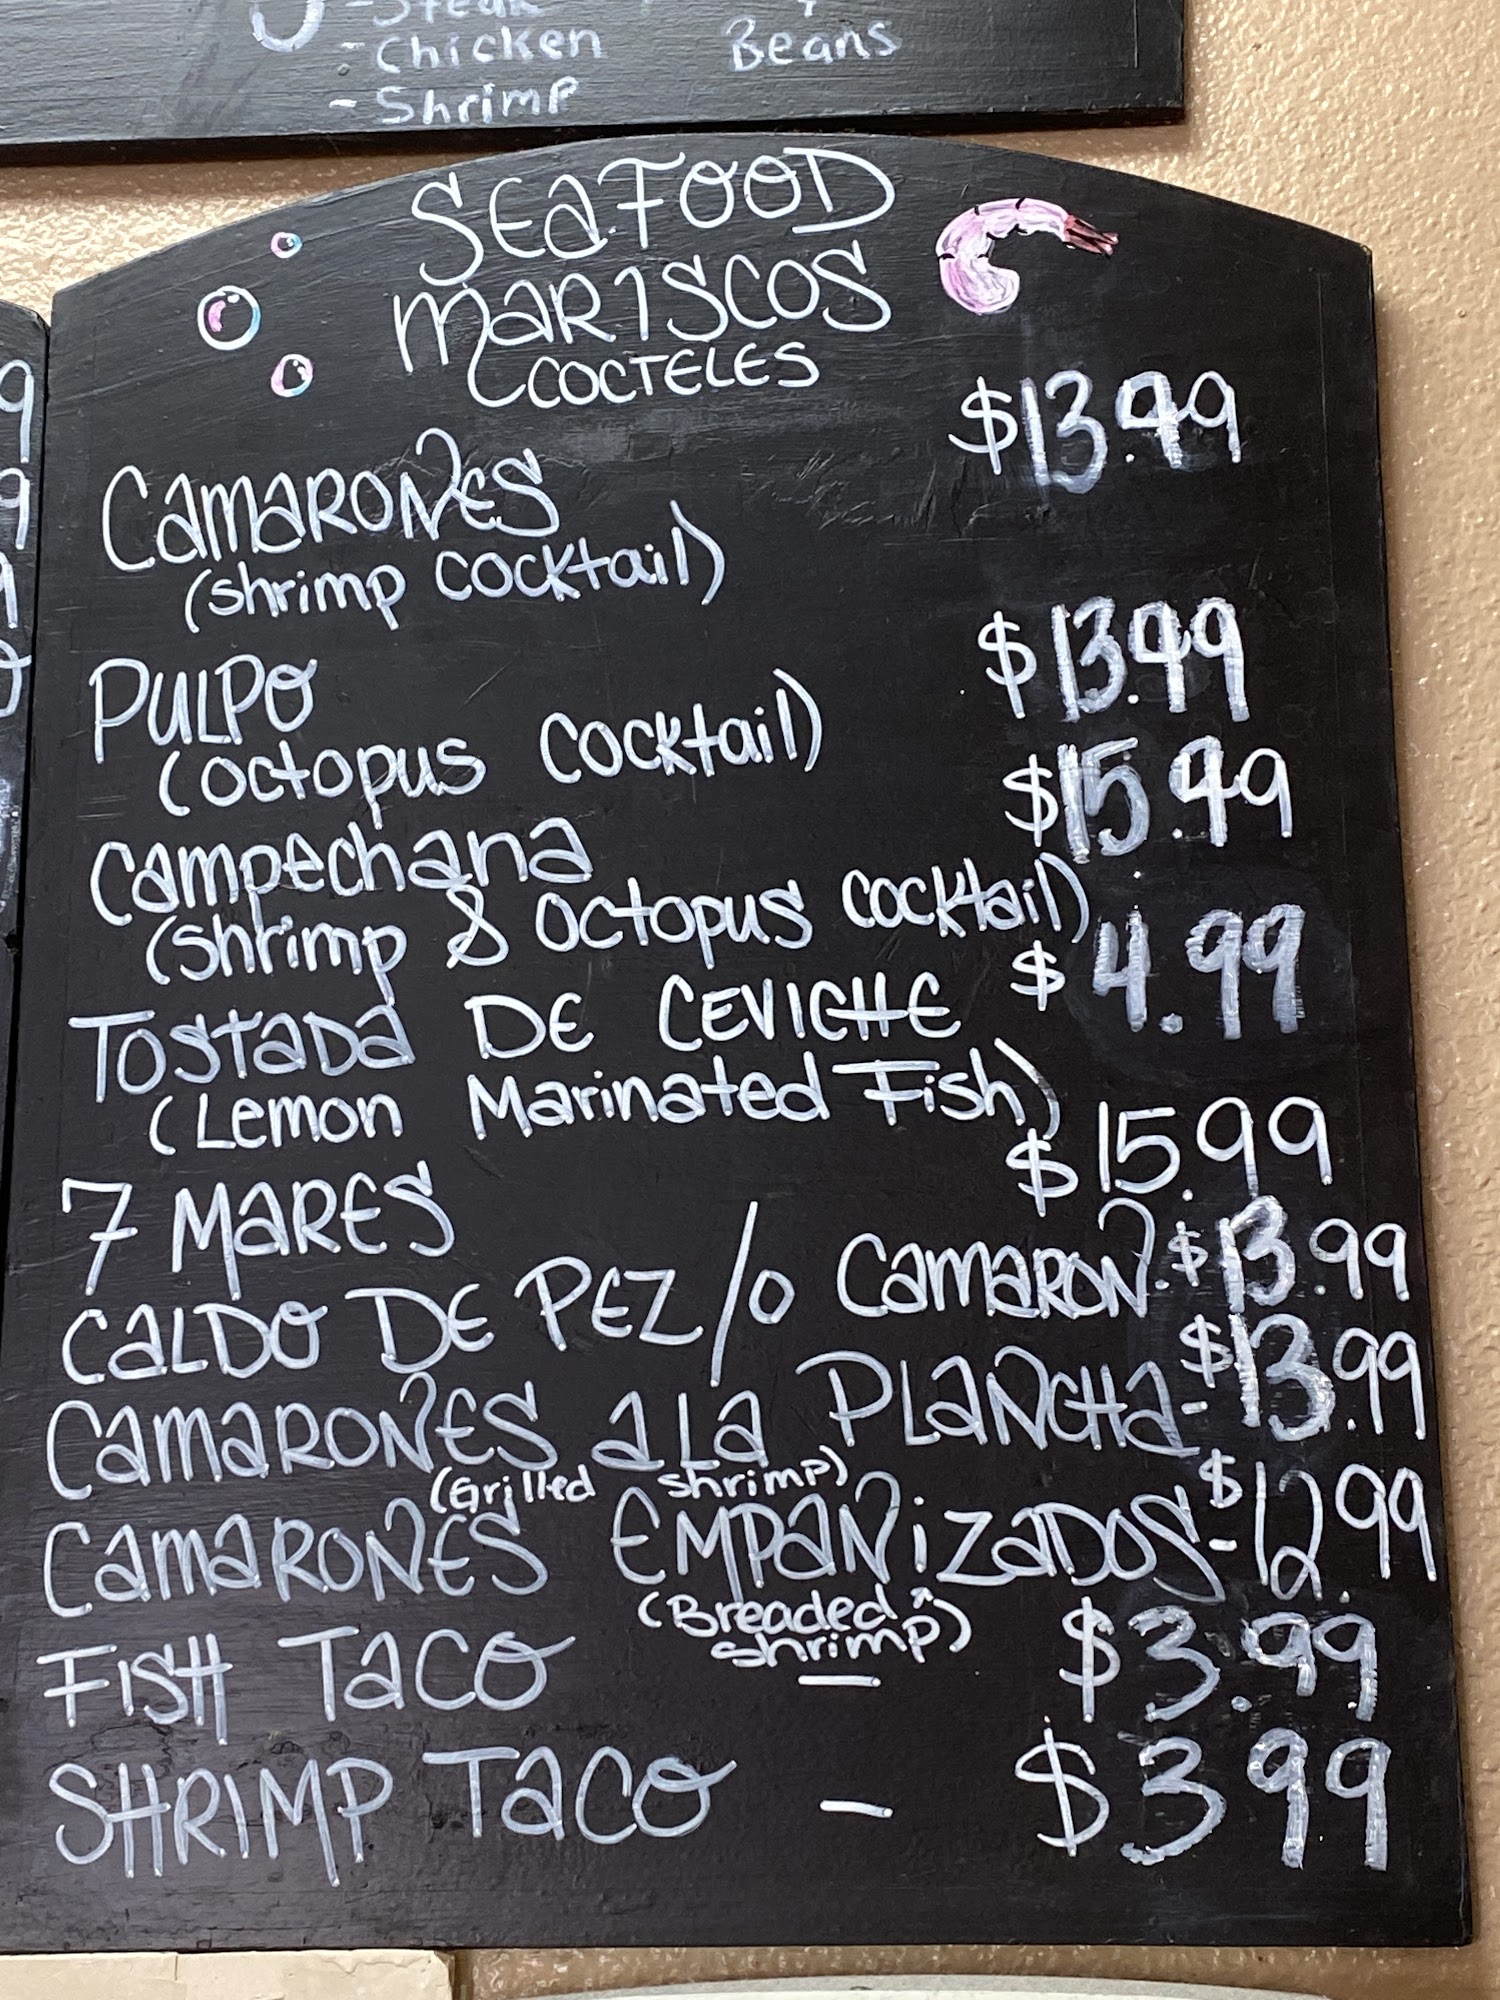 - Steak
- Chicken
Beans
- Shrimp
SEAFOOD
MARISCOS
COCTELES
$13.99
CAMARONES
(shrimp cocktail)
$13.99
PULPO
(octopus cocktail)
$15.99
Campechana
(shrimp & octopus cocktail)
$4.99
TOSTADA DE CEVICHE
(Lemon Marinated Fish)
$15.99
7 MARES
CALDO DE PEZ /o CAMARON $13.99
CAMARONES A LA PLANCHA - $13.99
(Grilled shrimp)
CAMARONES EMPANIZADOS - $12.99
(Breaded shrimp)
FISH TACO - $3.99
SHRIMP TACO - $3.99